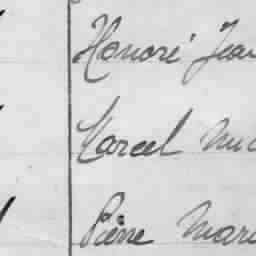 Honoré Jean
Marcel
Pierre Mari